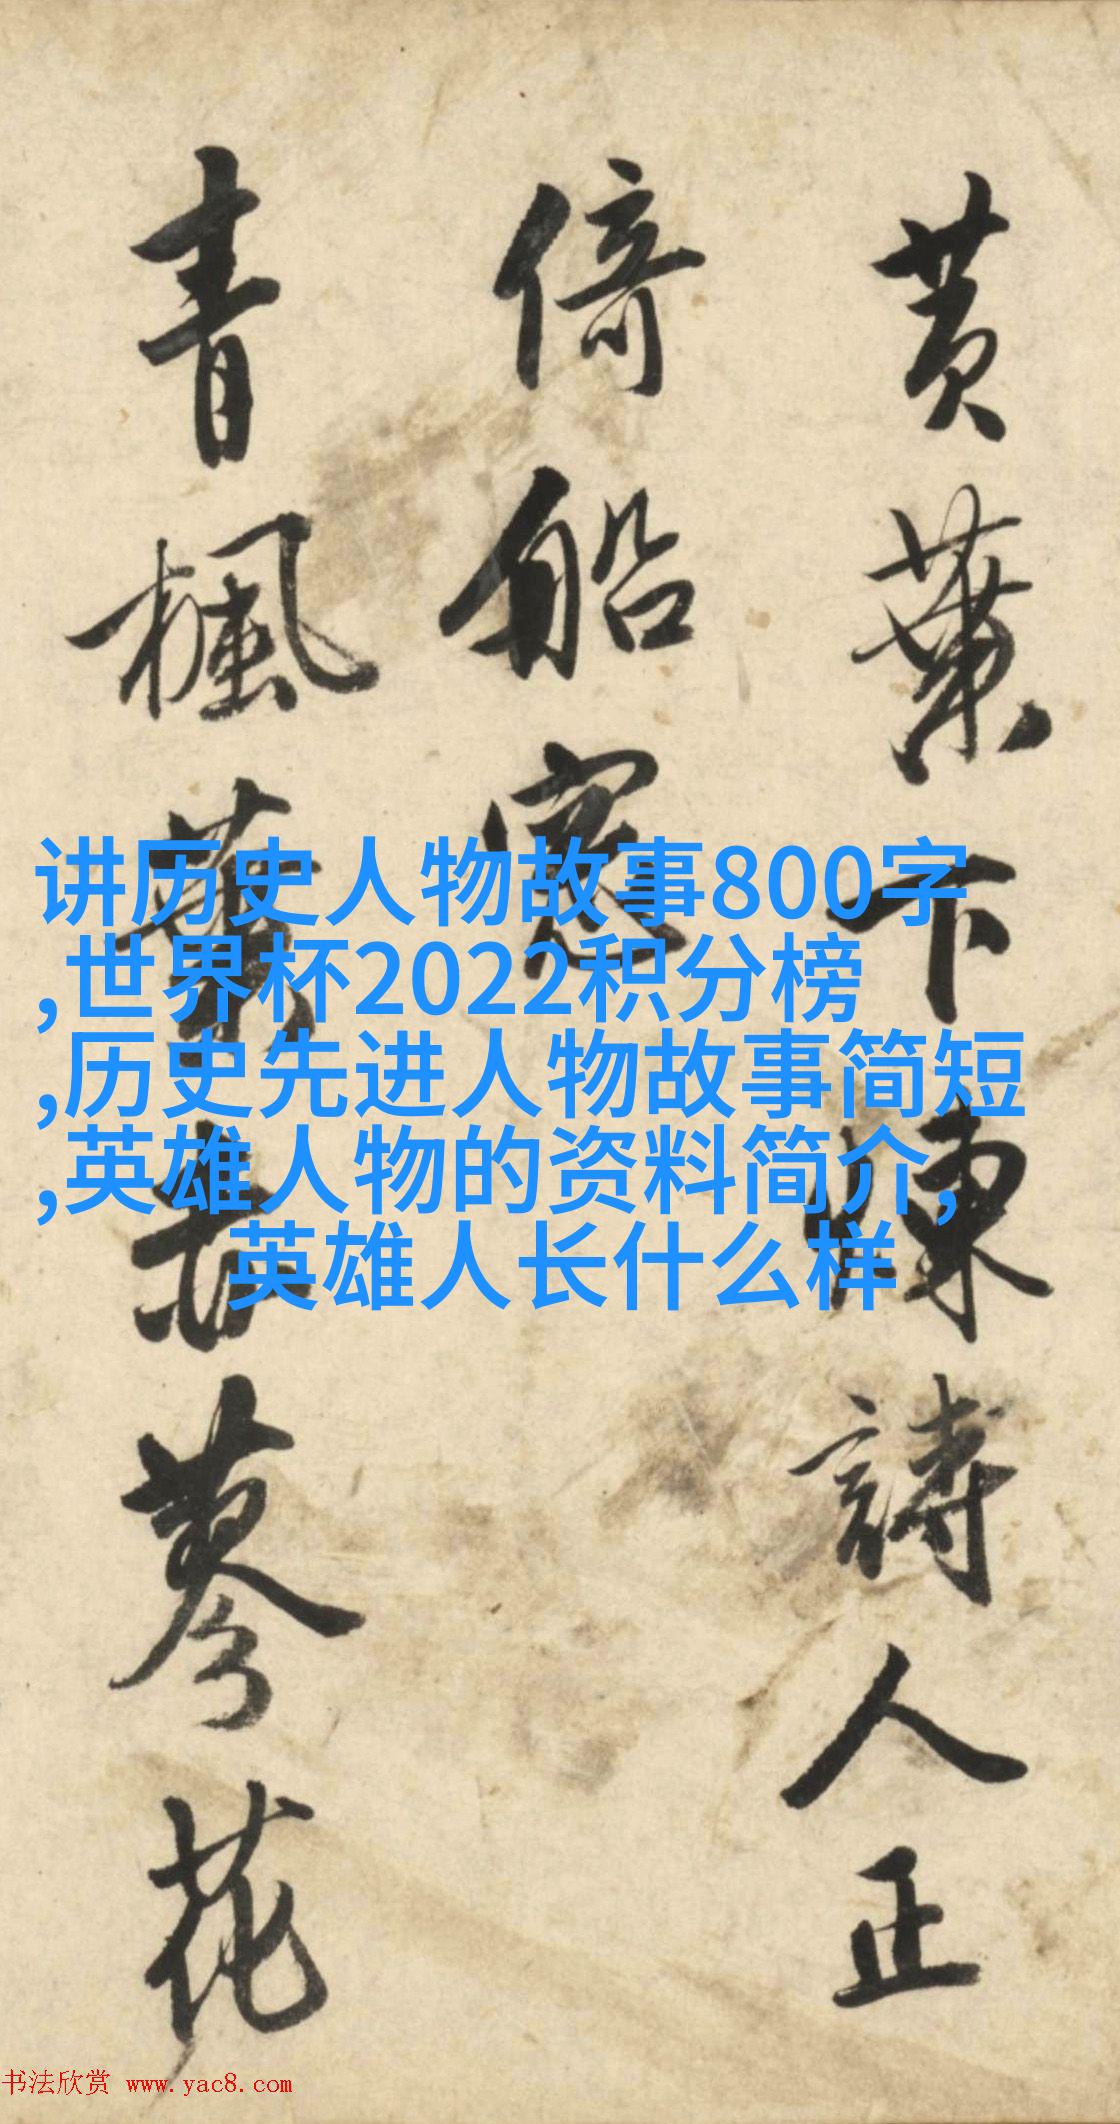 黄葉下陳詩人正
倚船窓
青楓葉赤蓼花
讲历史人物故事800字
,世界杯2022积分榜
,历史先进人物故事简短
,英雄人物的资料简介,
英雄人长什么样
书法欣赏 www.yac8.com